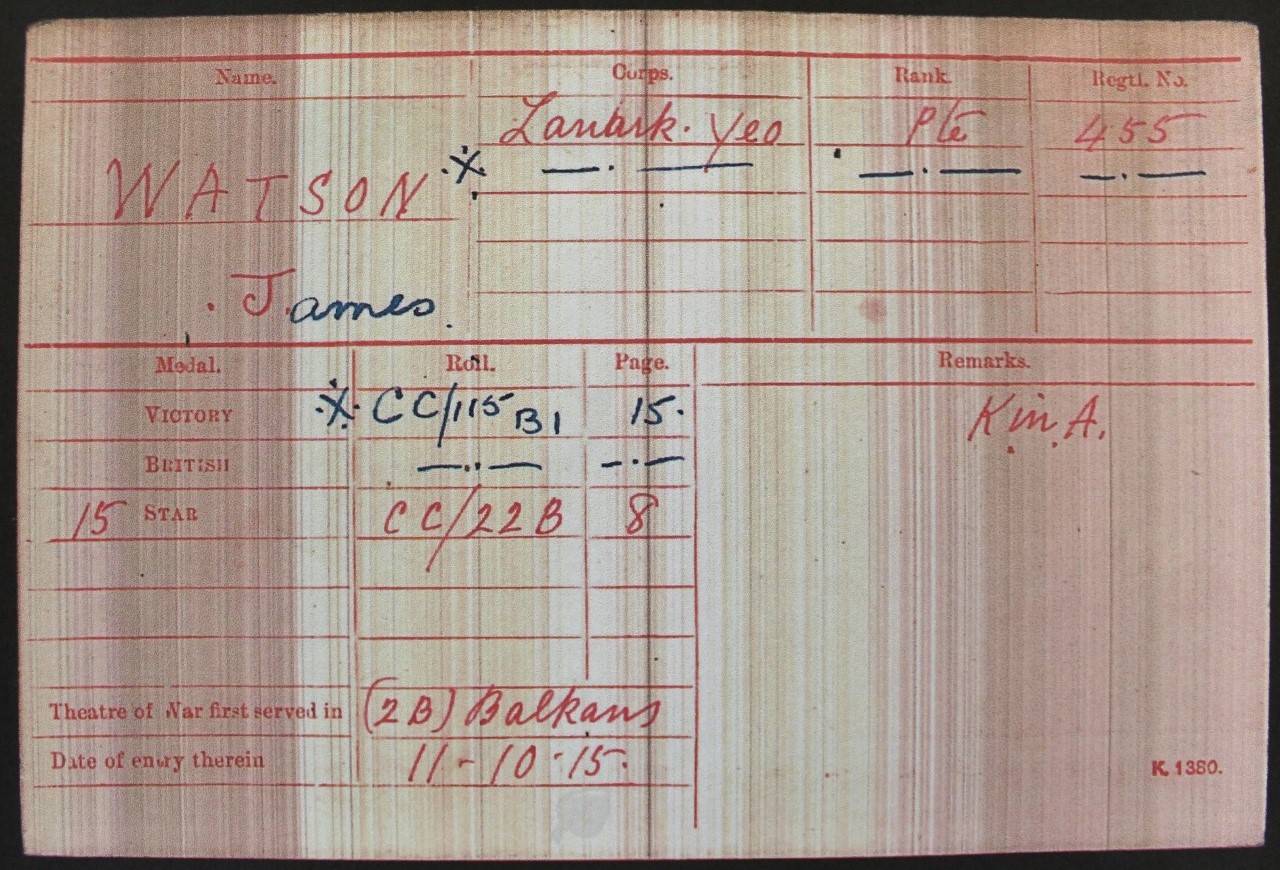 Name. Corps. Rank. Regtl. No.
Lanark. Yeo Pte 455
WATSON X —.— —.— —.—
James.
Medal. Roll. Page. Remarks.
VICTORY X CC/115 B1 15. K in A.
BRITISH —"— —.—
15 STAR CC/22B 8
Theatre of War first served in (2B) Balkans
Date of entry therein 11-10-15.
K. 1380.